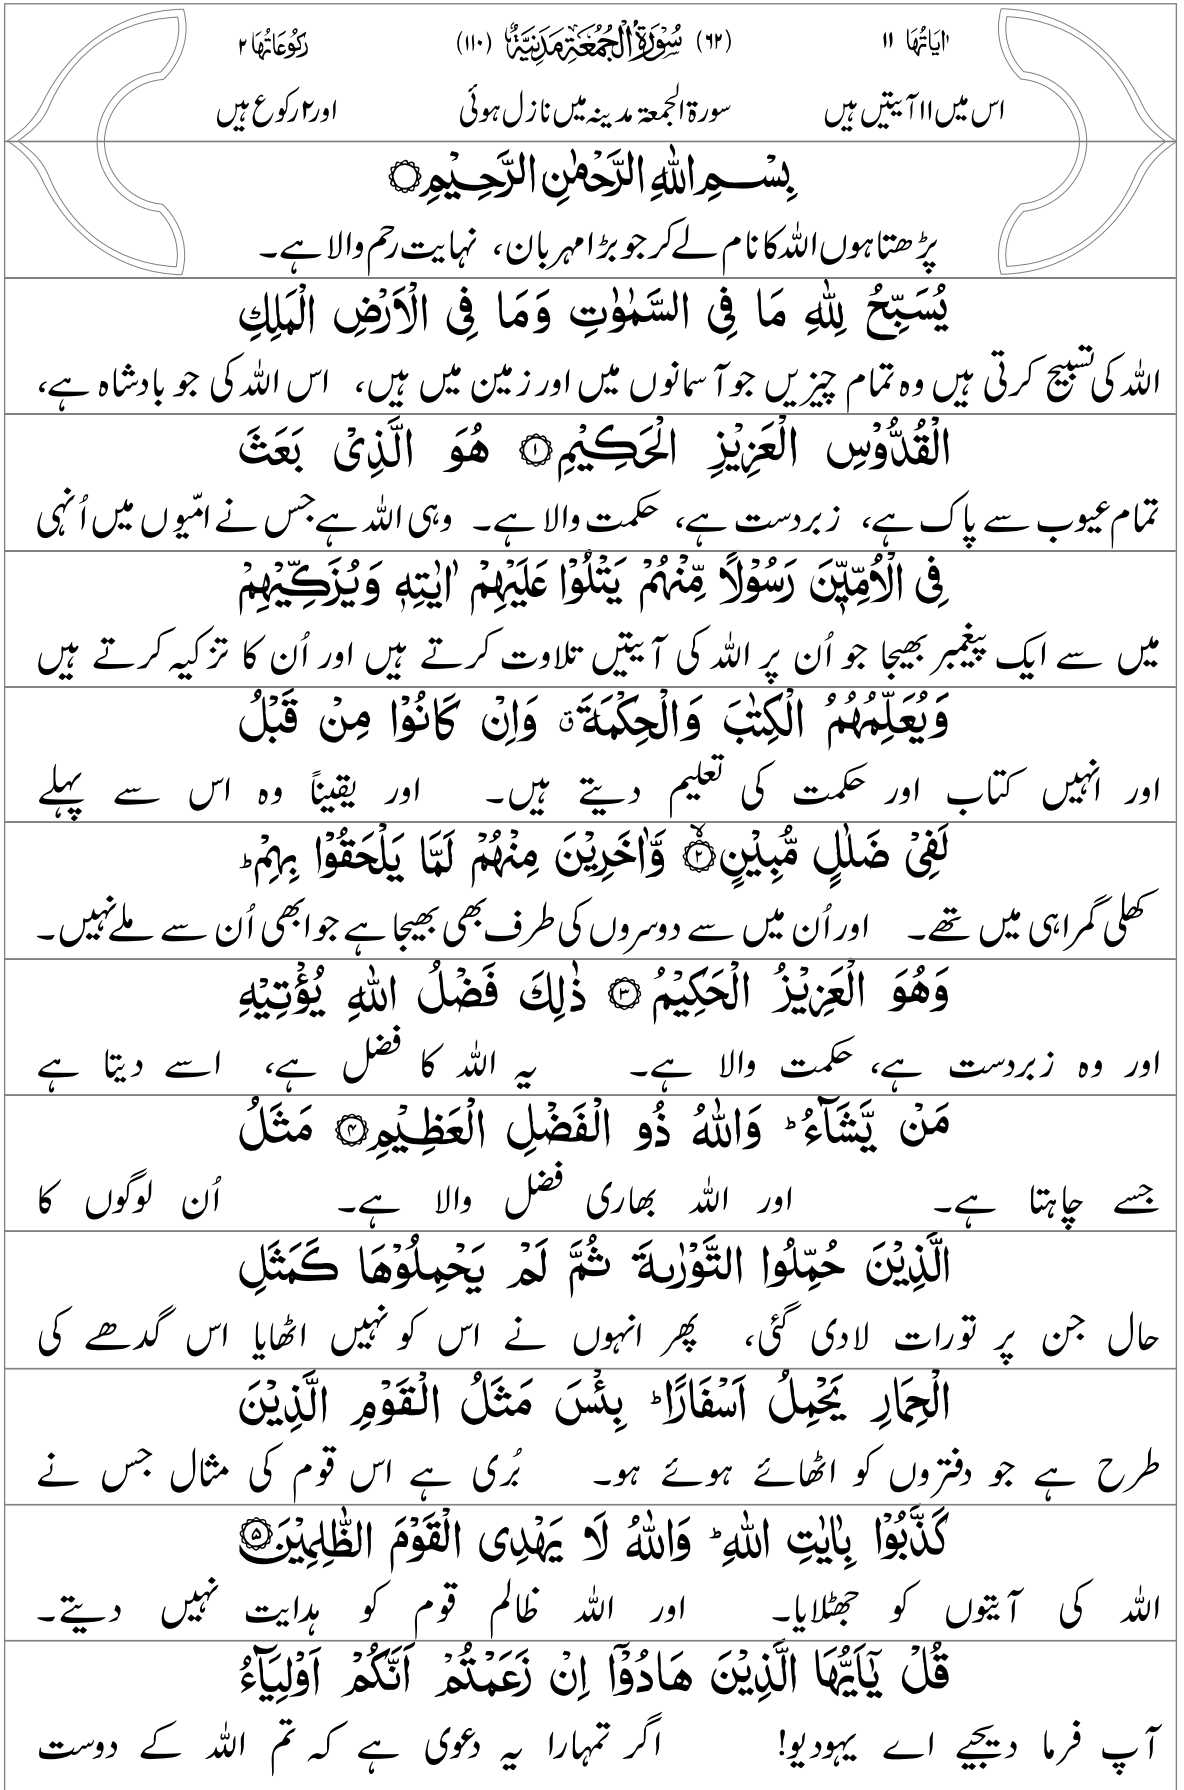 اٰيَاتُهَا ١١ (٦٢) سُوْرَةُ الْجُمُعَةِ مَدَنِيَّةٌ (١١٠) رُكُوْعَاتُهَا ٢
اس میں ۱۱ آیتیں ہیں سورۃ الجمعۃ مدینہ میں نازل ہوئی اور ۲ رکوع ہیں
بِسْمِ اللّٰهِ الرَّحْمٰنِ الرَّحِيْمِ۝
پڑھتا ہوں اللہ کا نام لے کر جو بڑا مہربان، نہایت رحم والا ہے۔
يُسَبِّحُ لِلّٰهِ مَا فِى السَّمٰوٰتِ وَمَا فِى الْاَرْضِ الْمَلِكِ
اللہ کی تسبیح کرتی ہیں وہ تمام چیزیں جو آسمانوں میں اور زمین میں ہیں، اس اللہ کی جو بادشاہ ہے،
الْقُدُّوْسِ الْعَزِيْزِ الْحَكِيْمِ۝۱ هُوَ الَّذِىْ بَعَثَ
تمام عیوب سے پاک ہے، زبردست ہے، حکمت والا ہے۔ وہی اللہ ہے جس نے امّیوں میں اُنہی
فِى الْاُمِّيّٖنَ رَسُوْلًا مِّنْهُمْ يَتْلُوْا عَلَيْهِمْ اٰيٰتِهٖ وَيُزَكِّيْهِمْ
میں سے ایک پیغمبر بھیجا جو اُن پر اللہ کی آیتیں تلاوت کرتے ہیں اور اُن کا تزکیہ کرتے ہیں
وَيُعَلِّمُهُمُ الْكِتٰبَ وَالْحِكْمَةَ ۗ وَاِنْ كَانُوْا مِنْ قَبْلُ
اور انہیں کتاب اور حکمت کی تعلیم دیتے ہیں۔ اور یقیناً وہ اس سے پہلے
لَفِىْ ضَلٰلٍ مُّبِيْنٍ۝۲ۙ وَّاٰخَرِيْنَ مِنْهُمْ لَمَّا يَلْحَقُوْا بِهِمْ ؕ
کھلی گمراہی میں تھے۔ اور اُن میں سے دوسروں کی طرف بھی بھیجا ہے جو ابھی اُن سے ملے نہیں۔
وَهُوَ الْعَزِيْزُ الْحَكِيْمُ۝۳ ذٰلِكَ فَضْلُ اللّٰهِ يُؤْتِيْهِ
اور وہ زبردست ہے، حکمت والا ہے۔ یہ اللہ کا فضل ہے، اسے دیتا ہے
مَنْ يَّشَآءُ ؕ وَاللّٰهُ ذُو الْفَضْلِ الْعَظِيْمِ۝۴ مَثَلُ
جسے چاہتا ہے۔ اور اللہ بھاری فضل والا ہے۔ اُن لوگوں کا
الَّذِيْنَ حُمِّلُوا التَّوْرٰىةَ ثُمَّ لَمْ يَحْمِلُوْهَا كَمَثَلِ
حال جن پر تورات لادی گئی، پھر انہوں نے اس کو نہیں اٹھایا اس گدھے کی
الْحِمَارِ يَحْمِلُ اَسْفَارًا ؕ بِئْسَ مَثَلُ الْقَوْمِ الَّذِيْنَ
طرح ہے جو دفتروں کو اٹھائے ہوئے ہو۔ بُری ہے اس قوم کی مثال جس نے
كَذَّبُوْا بِاٰيٰتِ اللّٰهِ ؕ وَاللّٰهُ لَا يَهْدِى الْقَوْمَ الظّٰلِمِيْنَ۝۵
اللہ کی آیتوں کو جھٹلایا۔ اور اللہ ظالم قوم کو ہدایت نہیں دیتے۔
قُلْ يٰۤاَيُّهَا الَّذِيْنَ هَادُوْۤا اِنْ زَعَمْتُمْ اَنَّكُمْ اَوْلِيَآءُ
آپ فرما دیجیے اے یہودیو! اگر تمہارا یہ دعوی ہے کہ تم اللہ کے دوست